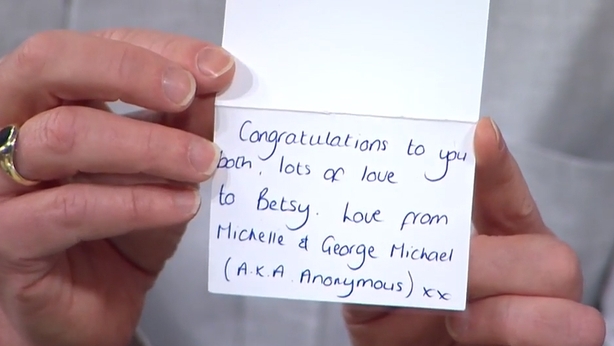 Congratulations to you
both, lots of love
to Betsy. Love from
Michelle & George Michael
(A.K.A. Anonymous) xx